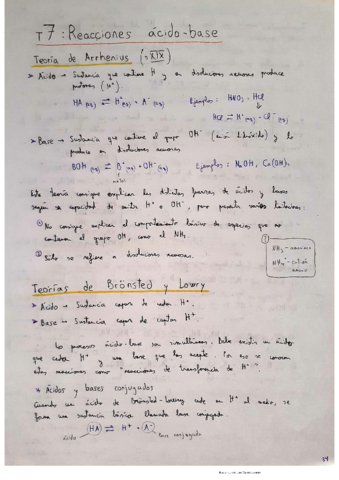 T7: Reacciones ácido-base
Teoría de Arrhenius (s. XIX)
➤ Ácido → Sustancia que contiene H y en disoluciones acuosas produce
protones (H⁺).
HA (aq) ⇌ H⁺(aq) + A⁻(aq) Ejemplos: HNO₃ · HCl
HCl ⇌ H⁺(aq) + Cl⁻(aq)
➤ Base → Sustancia que contiene el grupo OH⁻ (anión hidróxido) y lo
produce en disoluciones acuosas.
BOH (aq) ⇌ B⁺(aq) + OH⁻(aq) Ejemplos: NaOH, Ca(OH)₂
metal
Esta teoría consigue explicar las distintas fuerzas de ácidos y bases
según su capacidad de emitir H⁺ o OH⁻, pero presenta varias limitaciones:
① No consigue explicar el comportamiento básico de especies que no
contienen el grupo OH, como el NH₃.
② Solo se refiere a disoluciones acuosas.
NH₃ → amoníaco
NH₄⁺ → catión
amonio
Teorías de Brönsted y Lowry
➤ Ácido → Sustancia capaz de ceder H⁺.
➤ Base → Sustancia capaz de captar H⁺.
Los procesos ácido-base son simultáneos. Debe existir un ácido
que ceda H⁺ y una base que los acepte. Por eso se conocen
estas reacciones como "reacciones de transferencia de H⁺".
Ácidos y bases conjugados
Cuando un ácido de Brönsted-Lowry cede un H⁺ al medio, se
forma una sustancia básica llamada base conjugada.
HA ⇌ H⁺ + A⁻
ácido
base conjugada